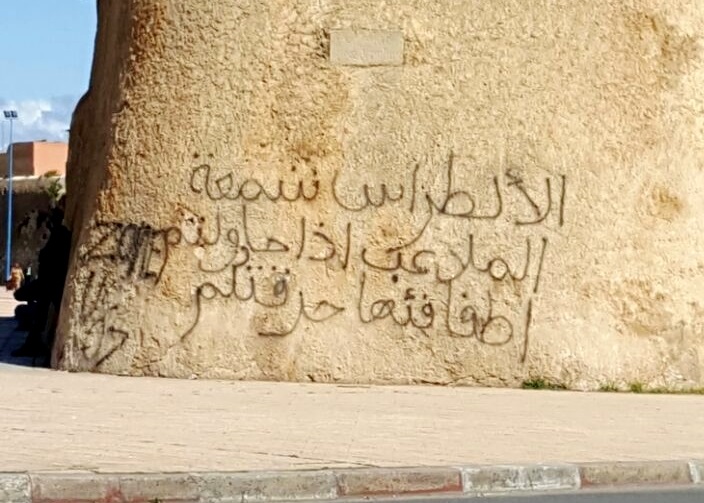 الألطراس شمعة
الملاعب اذا حاولتم
اطفافئها حرقتكم
ZONE